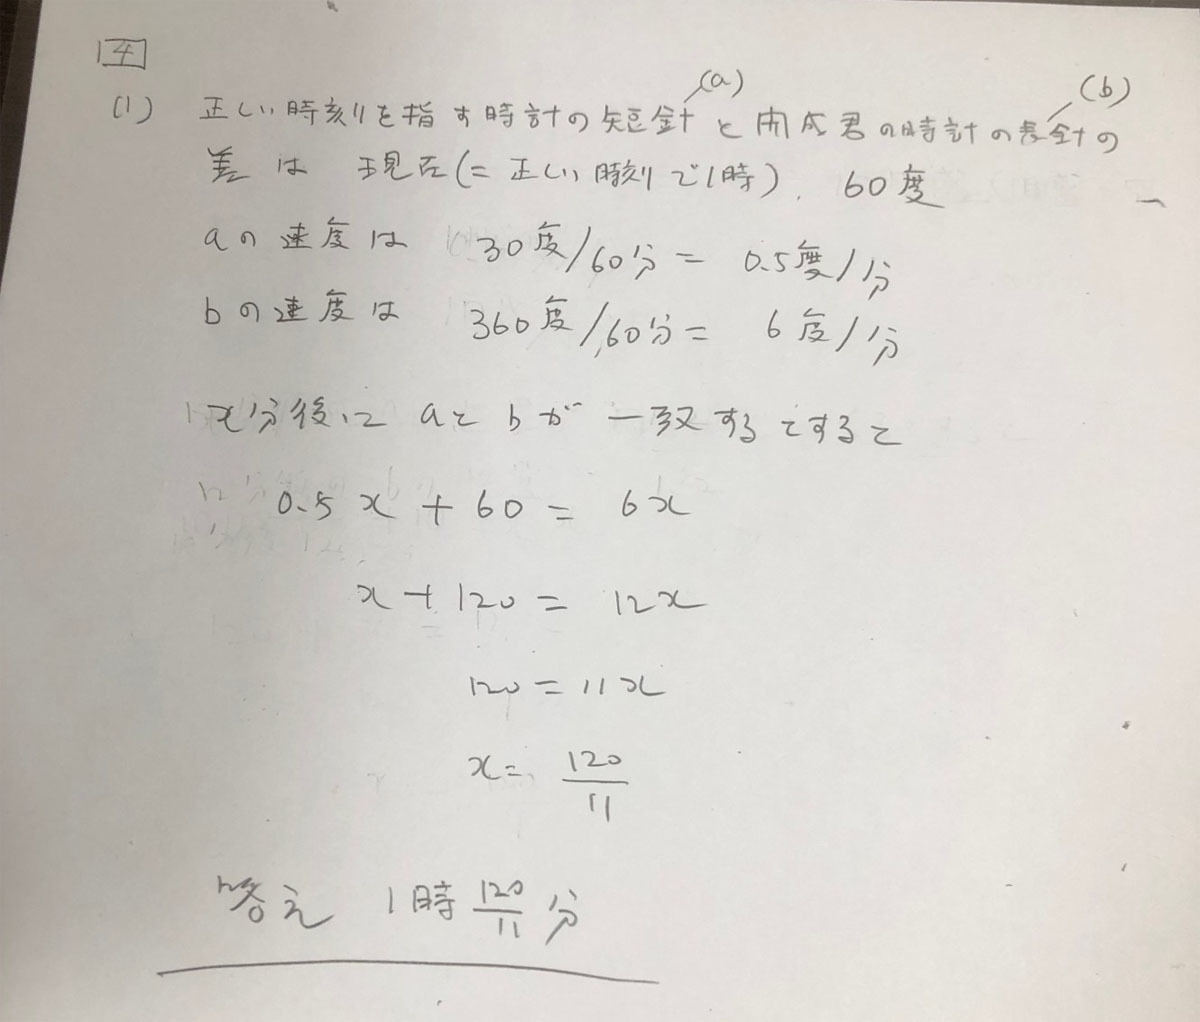 4
(a) (b)
(1) 正しい時刻を指す時計の短針と開成君の時計の長針の
差は 現在(=正しい時刻で1時)、60度
aの速度は 30度/60分 = 0.5度/1分
bの速度は 360度/60分 = 6度/1分
x分後に aとbが一致するとすると
0.5x + 60 = 6x
x + 120 = 12x
120 = 11x
x = 120/11
答え 1時 120/11 分